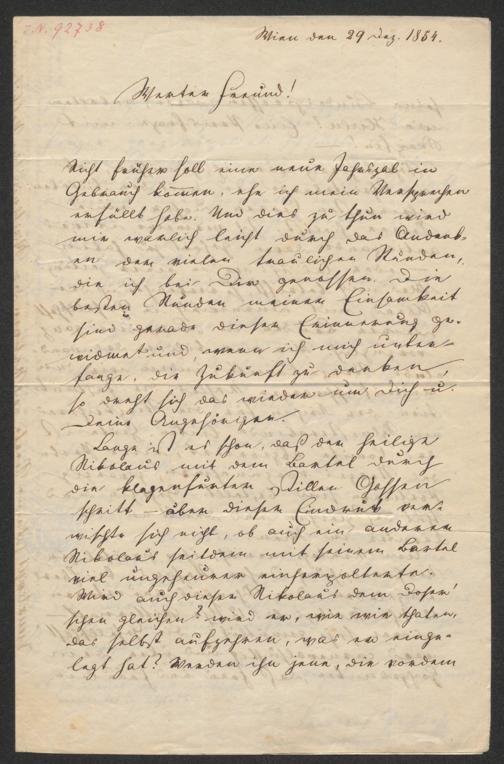 I.N. 92738
Wien den 29 Dez. 1854.
Werter Freund!
Nicht früher soll eine neue Jahrszal in
Gebrauch kommen, ehe ich mein Versprechen
erfüllt habe. Und dies zu thun wird
mir warlich leicht durch das Andenk-
en der vielen traulichen Stunden,
die ich bei Dir genossen. Die
besten Stunden meiner Einsamkeit
sind gerade dieser Erinnerung ge-
widmet und wenn ich mich unter-
fange, die Zukunft zu denken,
so dreht sich das wieder um Dich u.
Deine Angehörigen.
Lange ist es schon, daß der heilige
Nikolaus mit dem Bartel durch
die klagenfurter stillen Gassen
schritt – aber dieser Eindruck ver-
wischte sich nicht, ob auch ein anderer
Nikolaus seitdem mit seinem Bartel
viel ungeheurer einherpolterte.
Wird auch dieser Nikolaus dem
schen gleichen? wird er, wie wir thaten,
das selbst aufzehren, was er einge-
legt hat? Werden ihn jene, die vordem